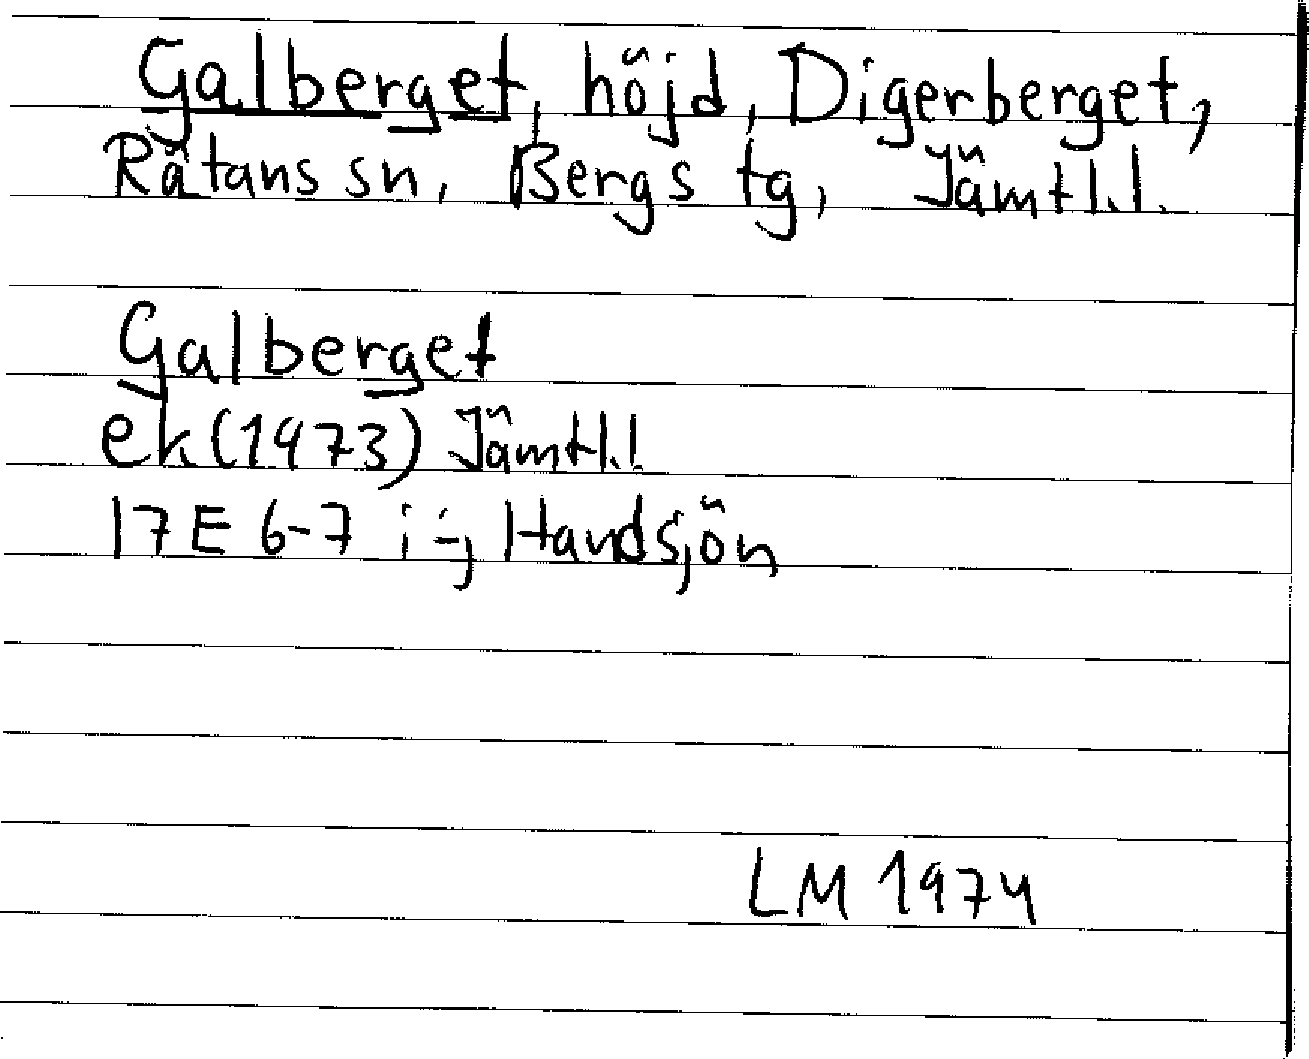 Galberget, höjd, Digerberget,
Rätans sn, Bergs tg, Jämtl.l.
Galberget
ek (1973) Jämtl.l
17E 6-7 i-j Handsjön
LM 1974